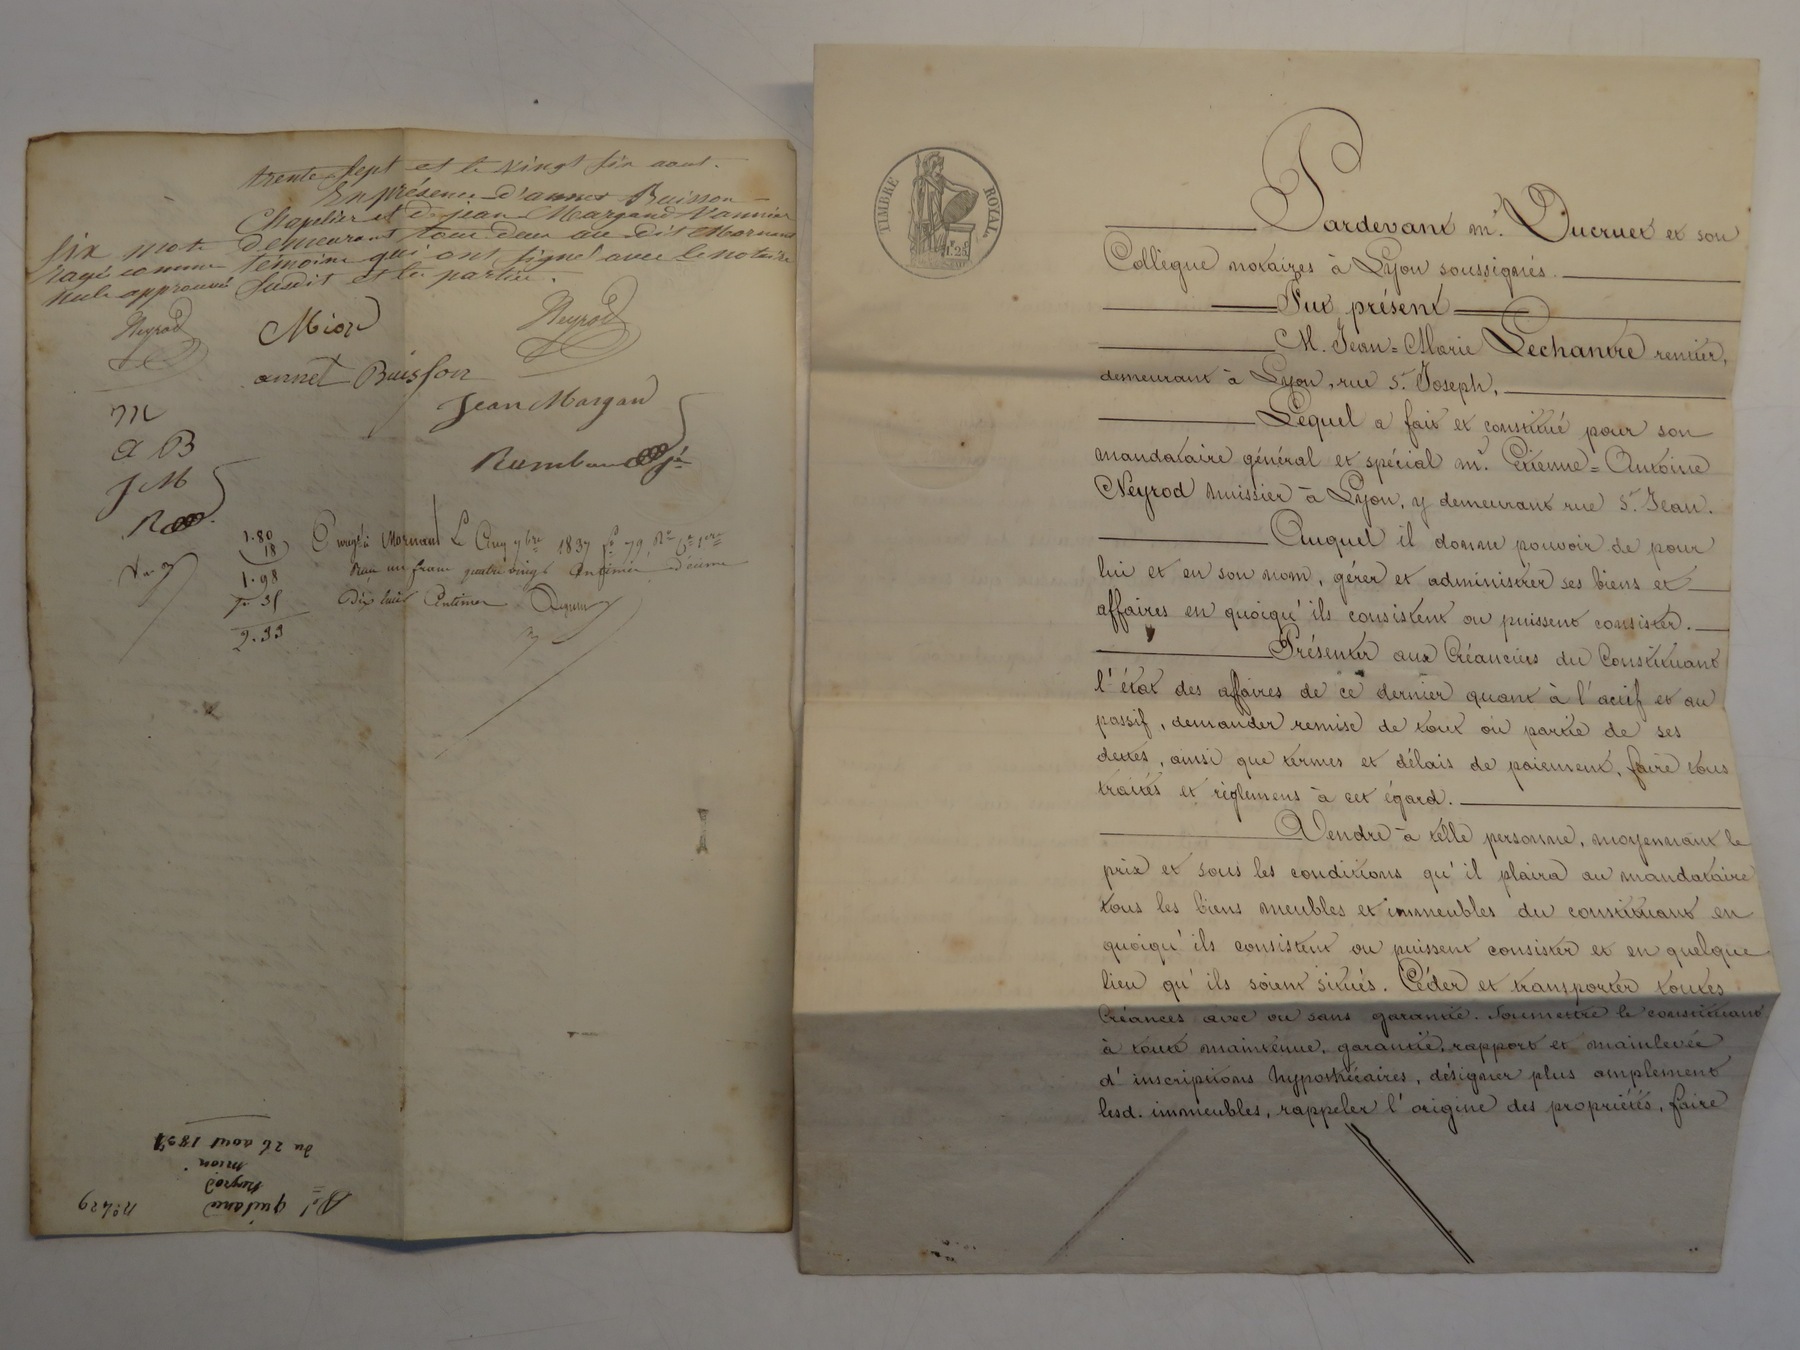 trente sept et le vingt six aout.
En présence d'annet Buisson
Chapelier et de jean Margand Vannier
six mots demeurant tous deux au dit Mornant
rayé comme témoins qui ont signé avec le notaire
nuls approuvé susdit et les parties.
Neyrod Mion Neyrod
annet Buisson
m Jean Margand
a B
J M
1.80 Enregé à Mornant Le Cinq 7bre 1837 fo 79
18
1.98 un franc quatre vingt centimes décime
35 Dix huit Centimes
2.33
du 26 aout 1837
mion
Neyrod
quitance
no 429
TIMBRE ROYAL
Pardevant me. Ducruet et son
Collègue notaires à Lyon soussignés.
Fut présent
M. Jean=Marie Lechantre rentier,
demeurant à Lyon, rue St. Joseph,
Lequel a fait et constitué pour son
mandataire général et spécial mr. Etienne=Antoine
Neyrod huissier à Lyon, y demeurant rue St. Jean.
Auquel il donne pouvoir de pour
lui et en son nom, gérer et administrer ses biens et
affaires en quoiqu'ils consistent ou puissent consister.
Présenter aux Créanciers du Constituant
l'état des affaires de ce dernier quant à l'actif et au
passif, demander remise de tout ou partie de ses
dettes, ainsi que termes et délais de paiement, faire tous
traités et réglemens à cet égard.
Vendre à telle personne, moyennant le
prix et sous les conditions qu'il plaira au mandataire
tous les biens meubles et immeubles du constituant en
quoiqu'ils consistent ou puissent consister et en quelque
lieu qu'ils soient situés. Céder et transporter toutes
Créances avec ou sans garantie. Soumettre le constituant
à toute maintenue, garantie, rapport et mainlevée
d'inscriptions hypothécaires, désigner plus amplement
lesd. immeubles, rappeler l'origine des propriétés, faire